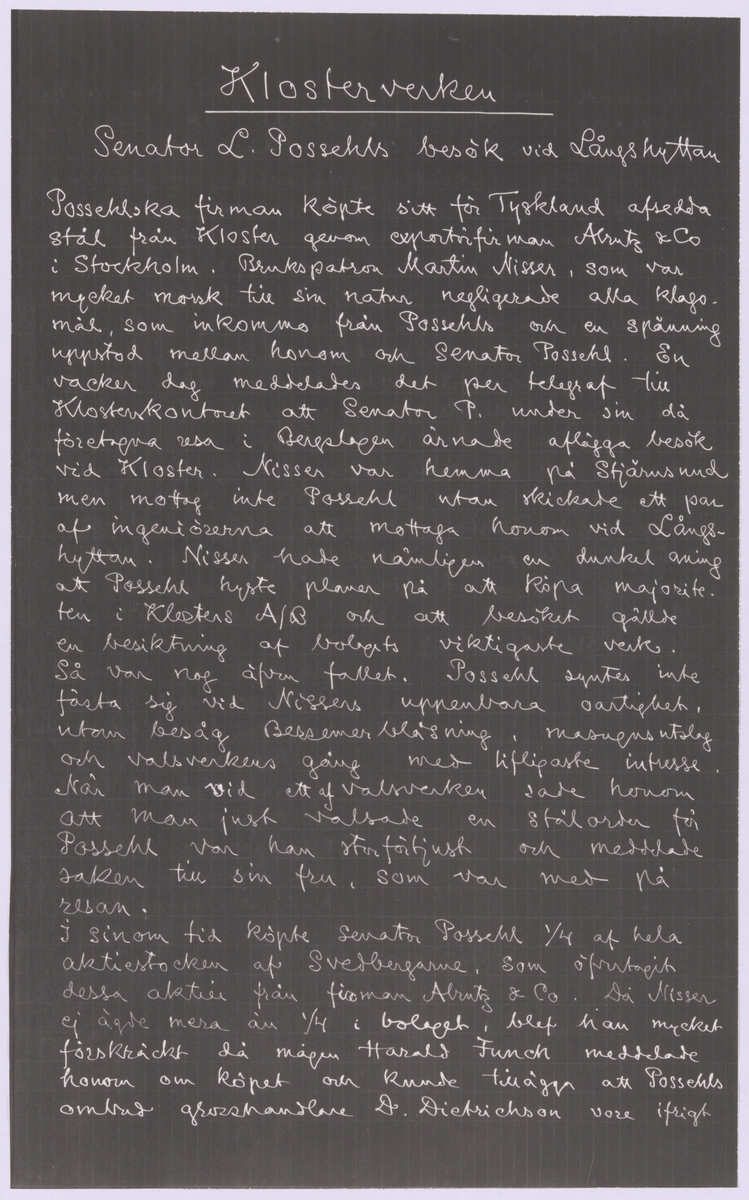 Klosterverken
Senator L. Possehls besök vid Långshyttan
Possehlska firman köpte sitt för Tyskland afsedda
stål från Kloster genom exportörfirman Alrutz & Co
i Stockholm. Brukspatron Martin Nisser, som var
mycket morsk till sin natur negligerade alla klago-
mål, som inkommo från Possehls och en spänning
uppstod mellan honom och Senator Possehl. En
vacker dag meddelades det per telegraf till
Klosterskontoret att Senator P. under sin då
företagna resa i Bergslagen ärnade aflägga besök
vid Kloster. Nisser var hemma på Stjärnsund
men mottog inte Possehl utan skickade ett par
af ingeniörerna att mottaga honom vid Långs-
hyttan. Nisser hade nämligen en dunkel aning
att Possehl hyste planer på att köpa majorite-
ten i Klosters A/B och att besöket gällde
en besiktning af bolagets viktigaste verk.
Så var nog äfven fallet. Possehl syntes inte
fästa sig vid Nissers uppenbara oartighet,
utom besåg Bessemerblåsning, masugnsutslag
och valsverkens gång med lifligaste intresse.
När man vid ett af valsverken sade honom
att man just valsade en stålorder för
Possehl var han storförtjust och meddelade
saken till sin fru, som var med på
resan.
I sinom tid köpte Senator Possehl 1/4 af hela
aktiestocken af Svedbergarne, som öfvertagit
dessa aktier från firman Alrutz & Co. Då Nisser
ej ägde mera än 1/4 i bolaget, blef han mycket
förskräckt då mågen Harald Funch meddelade
honom om köpet och kunde tillägga att Possehls
ombud grosshandlare D. Dietrichson vore ifrigt